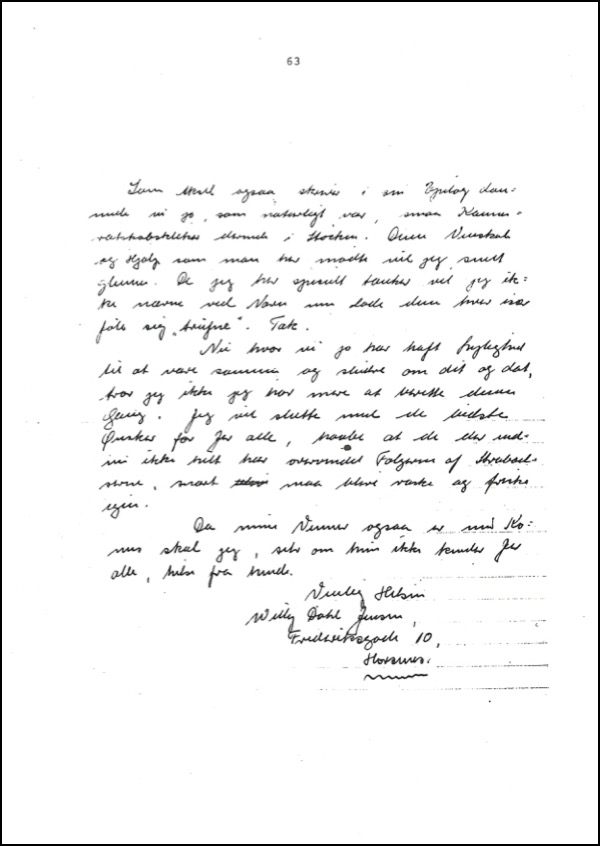 63
Som skrev ogsaa skriver i sin Epilog dan=
nede vi jo, som naturligt var, smaa Kamme=
ratskabsklikker dernede i Stocken. Dem Venskab
og Hjælp som man har mødt vil jeg snart
glemme. De jeg har specielt tænker vil jeg ik=
ke nævne ved Navn men lade dem hver især
føle sig "trufne". Tak.
Nu hvor vi jo har haft Lejlighed
til at være sammen og sludre om dit og dat,
tror jeg ikke jeg har mere at berette denne
Gang. Jeg vil slutte med de bedste
Ønsker for Jer alle, haabe at de der end=
nu ikke helt har overvundet Følgerne af Strabad=
serne, snart maa blive raske og friske
igen.
Da mine Venner ogsaa er min Ko=
nes skal jeg, selv om hun ikke kender Jer
alle, hilse fra hende.
Venlig Hilsen
Willy Dahl Jensen,
Frederiksgade 10,
Horsens.